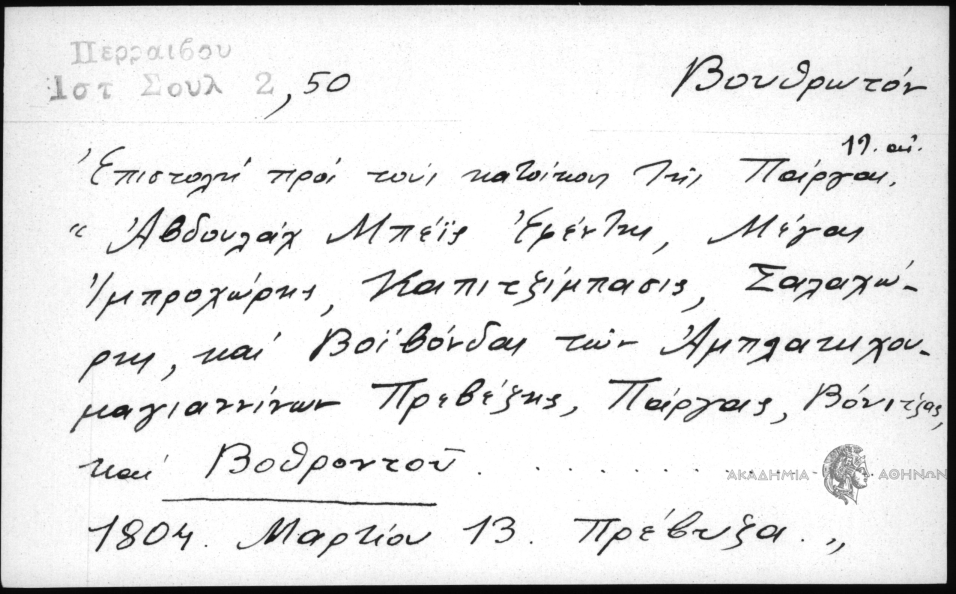 Περραιβου
1στ Σουλ 2, 50
Βουθρωτόν
19. αἰ.
Ἐπιστολή πρός τούς κατοίκους τῆς Πάργας.
" Ἀβδουλάχ Μπέϊς Ἐφέντης, Μέγας
Ἰμπροχώρης, Καπιτζίμπασις, Σαλαχώ-
ρης, καί Βοϊβόνδας τῶν Ἀμπλατιχου-
μαγιαννίνων Πρεβέζης, Πάργας, Βόνιτζας,
καί Βοθροντοῦ . . . . . . . . . .
1804. Μαρτίου 13. Πρέβυζα. "
ΑΚΑΔΗΜΙΑ ΑΘΗΝΩΝ